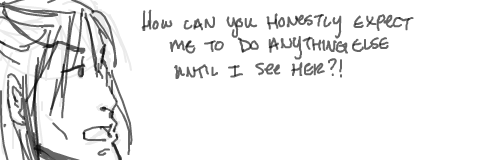 How can you honestly expect
me to do anything else
until I see her?!